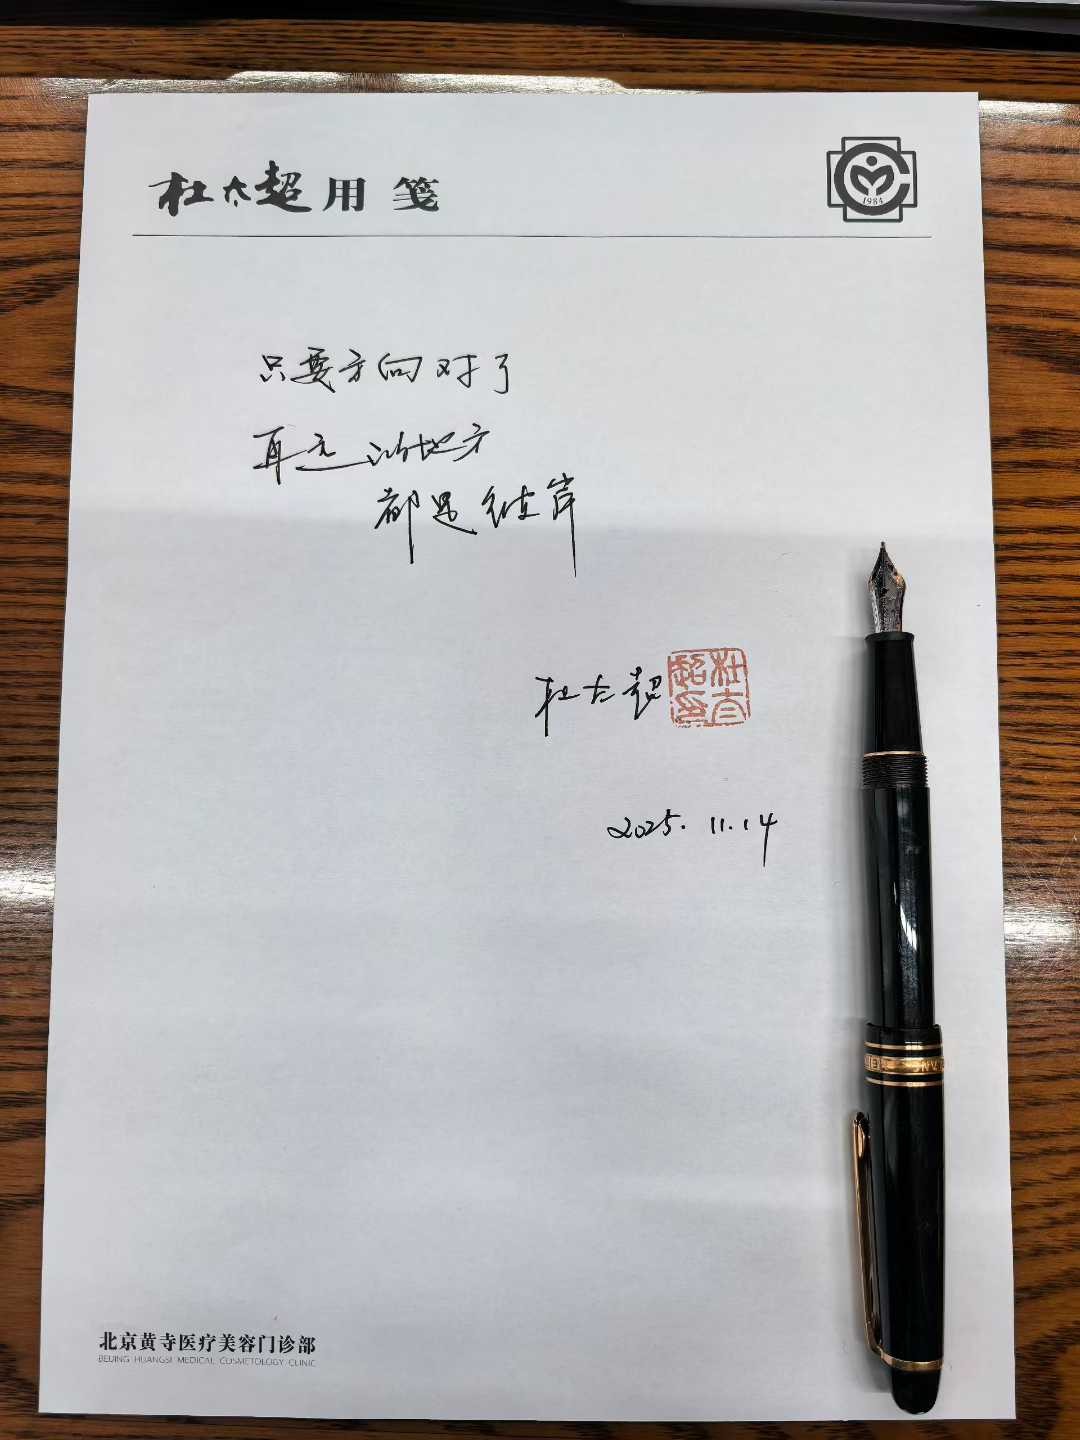 杜太超用笺
1984
只要方向对了
再远的地方
都是彼岸
杜太超
杜太超印
2025.11.14
北京黄寺医疗美容门诊部
BEIJING HUANGSI MEDICAL COSMETOLOGY CLINIC